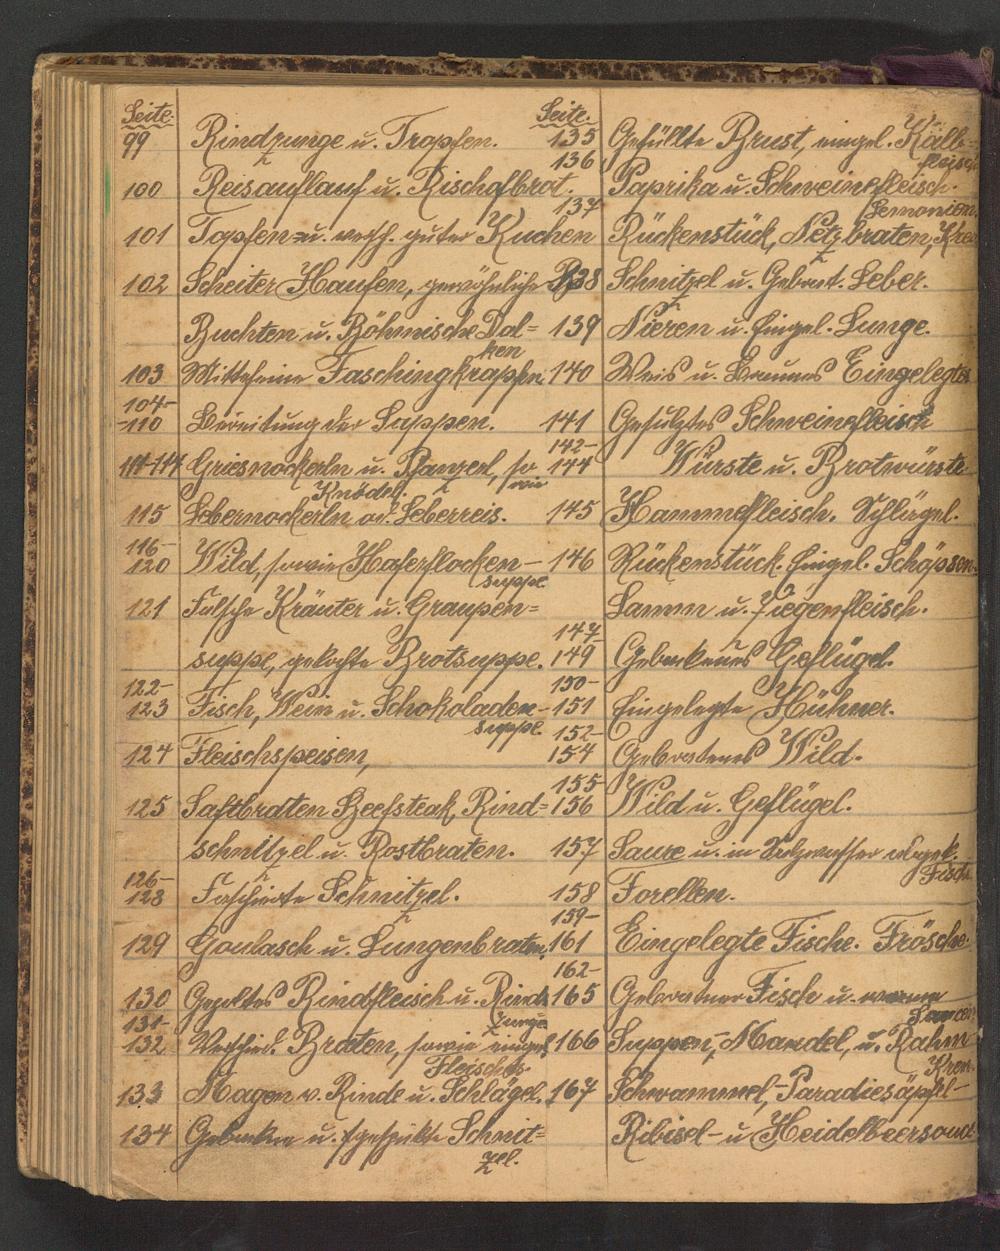 Seite.
99 Rindzunge u. Tropfen.
100 Reisauflauf u. Bischofbrot.
101 Topfen= u. versch. guter Kuchen
102 Scheiter Haufen, gewöhnliche
Buchten u. Böhmische Dal=
ken
103 Mittelfeine Faschingkrapfen
104-
-110 Bereitung der Suppen.
111-114 Griesnockerln u. Panzerl, so
wie
Knödel.
115 Lebernockerln od. Leberreis.
116-
120 Wild, sowie Haferflocken-
suppe.
121 Falsche Kräuter u. Graupen=
suppe, gekochte Brotsuppe.
122-
123 Fisch, Wein u. Schokoladen-
suppe.
124 Fleischspeisen,
125 Saftbraten Beefsteak, Rind=
schnitzel u. Rostbraten.
126-
128 Faschierte Schnitzel.
129 Goulasch u. Lungenbraten.
130 Rindfleisch u. Rinds
zunge
131-
132 Verschied. Braten, sowie eingel.
Fleisch.
133 Magen v. Rinde u. Schlägel.
134 Gebackene u. gespickte Schnit=
zel.
Seite.
135 Gefüllte Brust, eingel. Kalb=
fleisch
136 Paprika u. Schweinefleisch.
137 Lemonien.
Rückenstück, Netzbraten,
138 Schnitzel u. Gebrat. Leber.
139 Nieren u. Eingel. Lunge.
140 Weis u. Braunes Eingelegtes
141 Gesulztes Schweinefleisch
142-
144 Würste u. Bratwürste
145 Hammelfleisch. Schlägel.
146 Rückenstück. Eingel. Schöpsen-
Lamm u. Ziegenfleisch.
147
149 Gebackenes Geflügel.
150-
151 Eingelegte Hühner.
152-
154 Gebratenes Wild.
155
156 Wild u. Geflügel.
157 Saure u. in Salzwasser abgek.
Fisch
158 Forellen.
159-
161 Eingelegte Fische. Frösche.
162-
165 Gebratner Fisch u. warme
Saucen
166 Suppen,- Mandel, u. Rahm
Kren.
167 Schwammel,- Paradiesäpfel-
Ribisel- u Heidelbeersauce